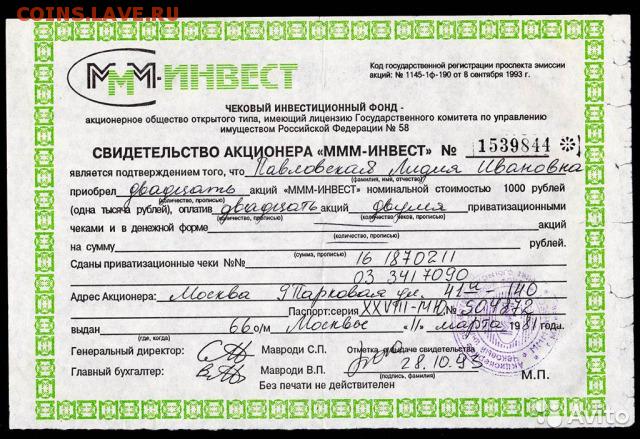 COINS.LAVE.RU
МММ-ИНВЕСТ
Код государственной регистрации проспекта эмиссии
акций: № 1145-1ф-190 от 8 сентября 1993 г.
ЧЕКОВЫЙ ИНВЕСТИЦИОННЫЙ ФОНД -
акционерное общество открытого типа, имеющий лицензию Государственного комитета по управлению
имуществом Российской Федерации № 58
СВИДЕТЕЛЬСТВО АКЦИОНЕРА «МММ-ИНВЕСТ» № 1539844 ※
является подтверждением того, что Павловская Лидия Ивановна
(фамилия, имя, отчество)
приобрел двадцать акций «МММ-ИНВЕСТ» номинальной стоимостью 1000 рублей
(количество, прописью)
(одна тысяча рублей), оплатив двадцать акций двумя приватизационными
(количество, прописью) (количество чеков, прописью)
чеками и в денежной форме акций
(количество, прописью)
на сумму рублей.
(сумма, прописью)
Сданы приватизационные чеки №№ 16 1870211
03 3417090
Адрес Акционера: Москва 9 Парковая ул. 41а - 140
Паспорт: серия XXVIII-МЮ № 504872
выдан 66 о/м Москвы "11" марта 1981 годы.
(где, когда)
Генеральный директор: Мавроди С.П. Отметка о выдаче свидетельства
28.10.93
Главный бухгалтер: Мавроди В.П. (подпись, фамилия) М.П.
Без печати не действителен
Avito